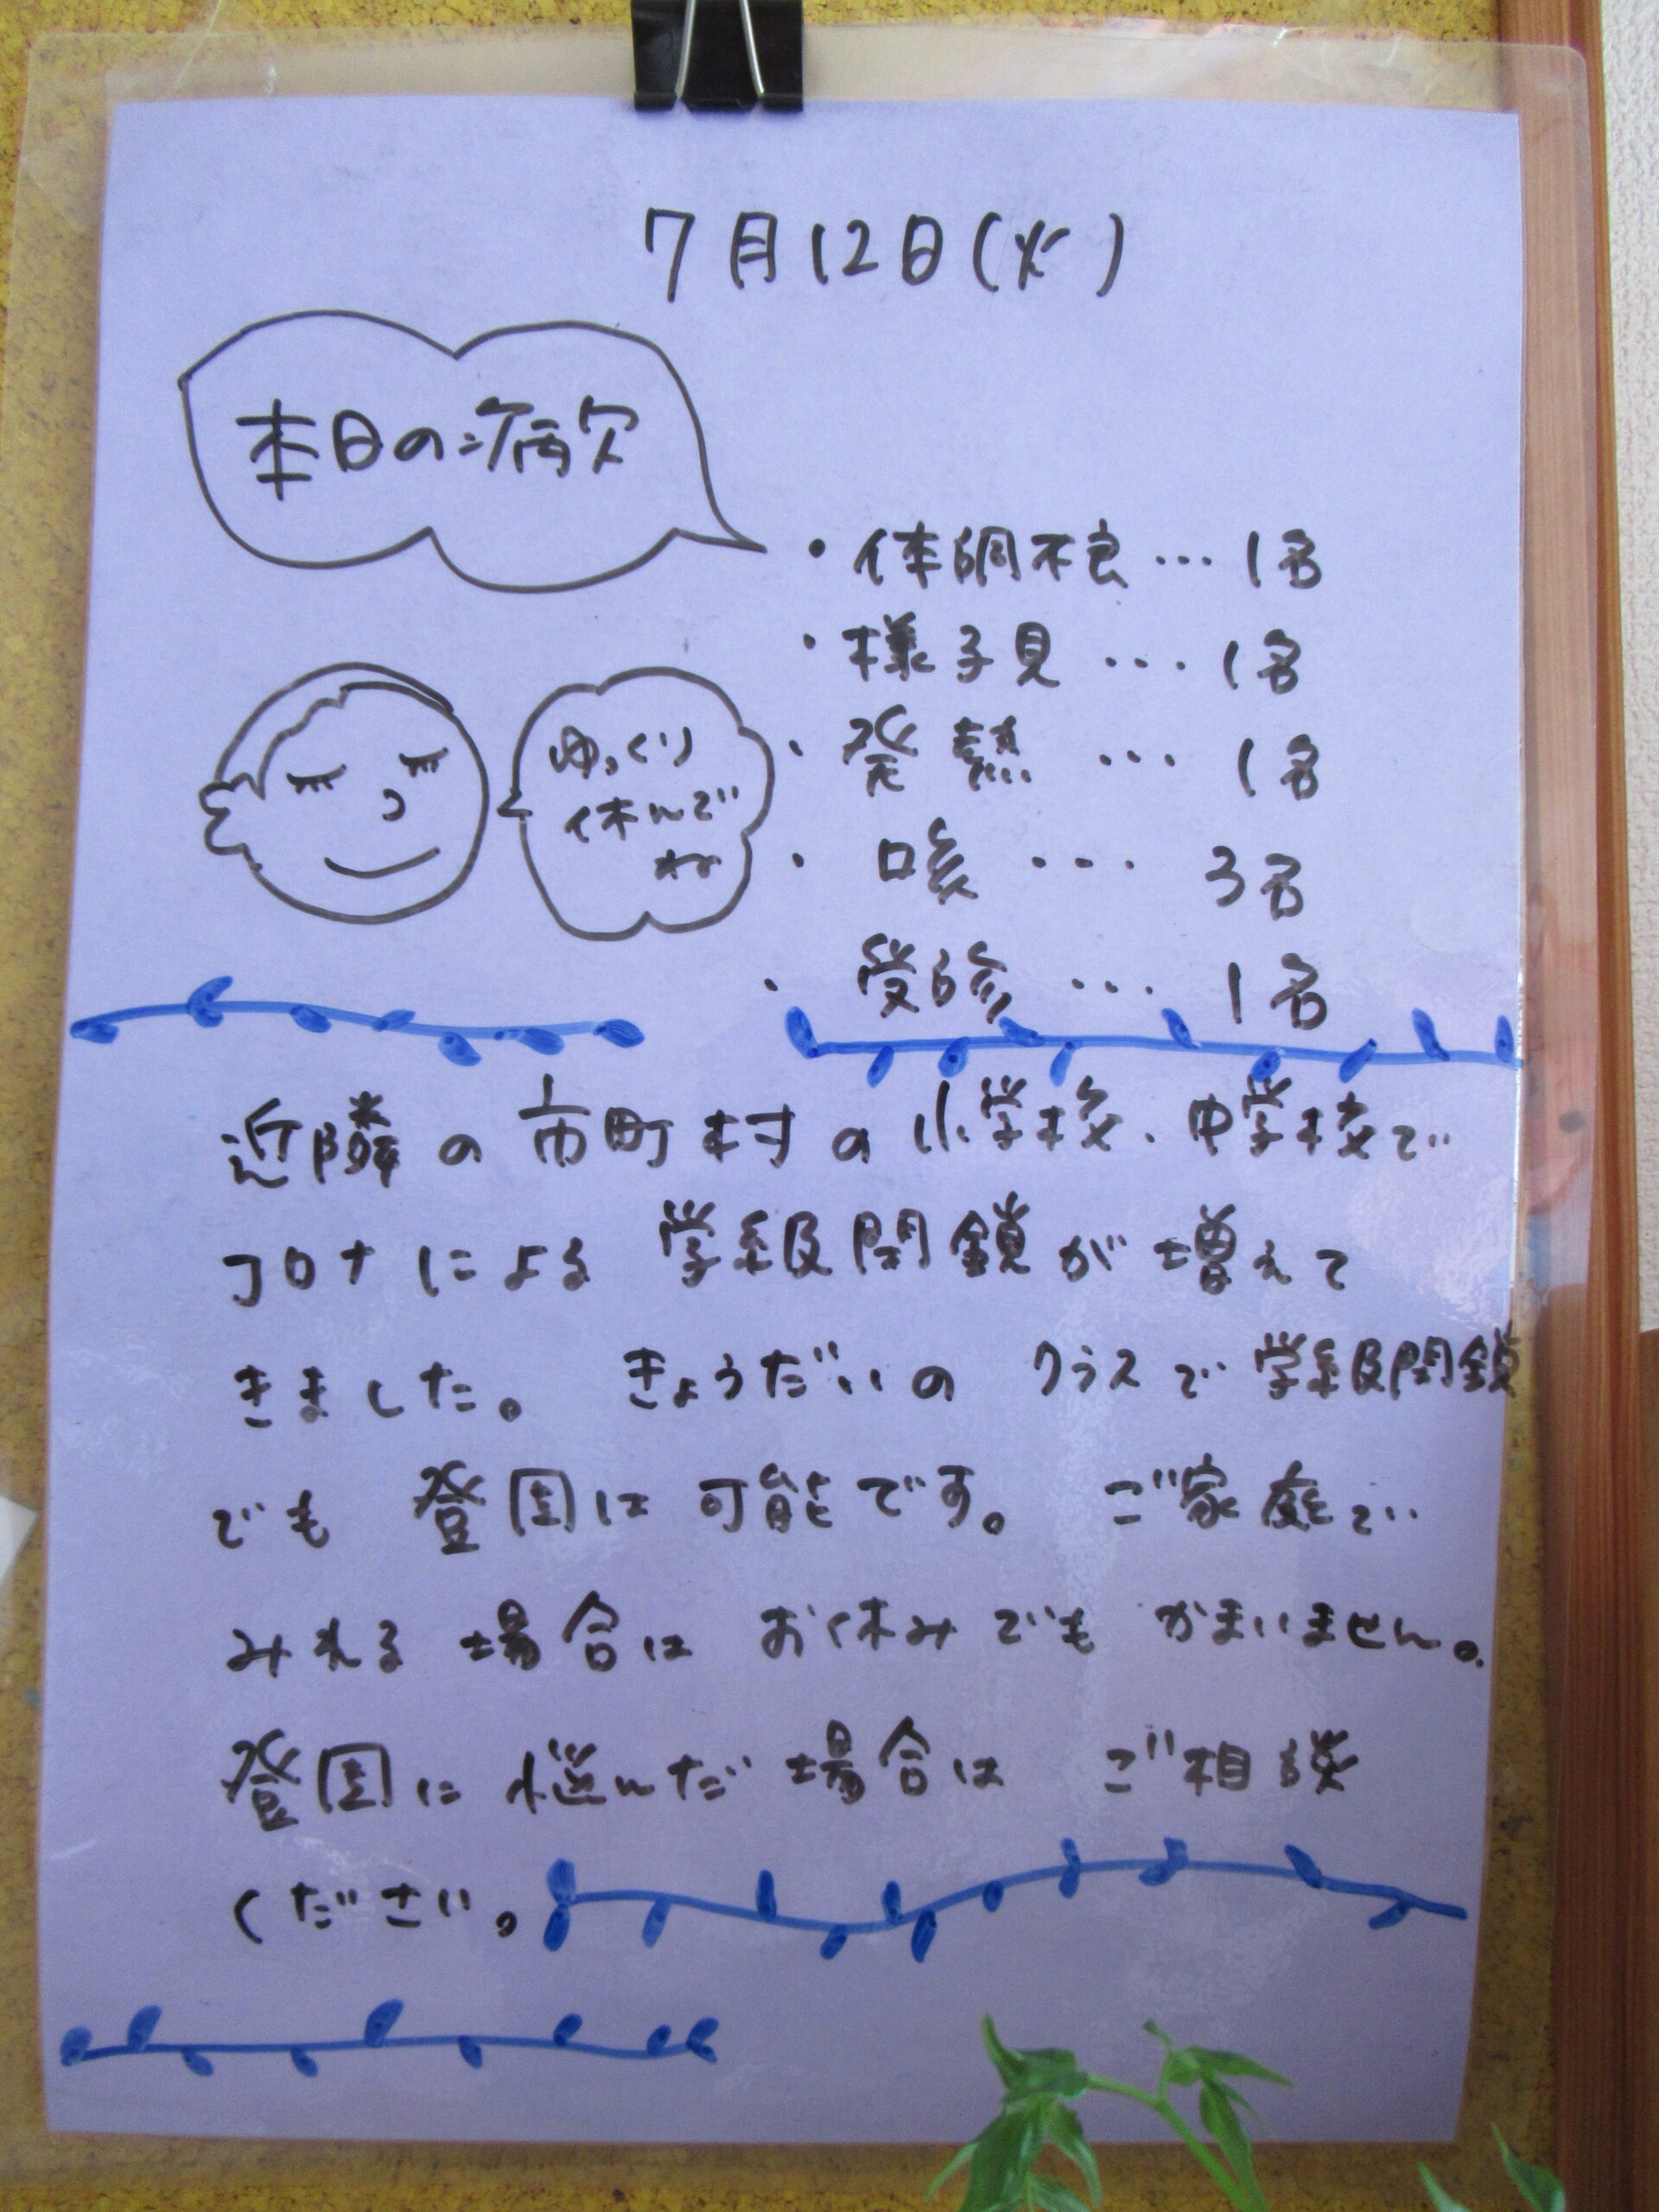 7月12日(火)
本日の病欠
・体調不良…1名
・様子見…1名
・発熱…1名
・咳…3名
・受診…1名
ゆっくり
休んで
ね
近隣の市町村の小学校、中学校で
コロナによる学級閉鎖が増えて
きました。きょうだいのクラスで学級閉鎖
でも登園は可能です。ご家庭で
みれる場合はお休みでもかまいません。
登園に悩んだ場合はご相談
ください。